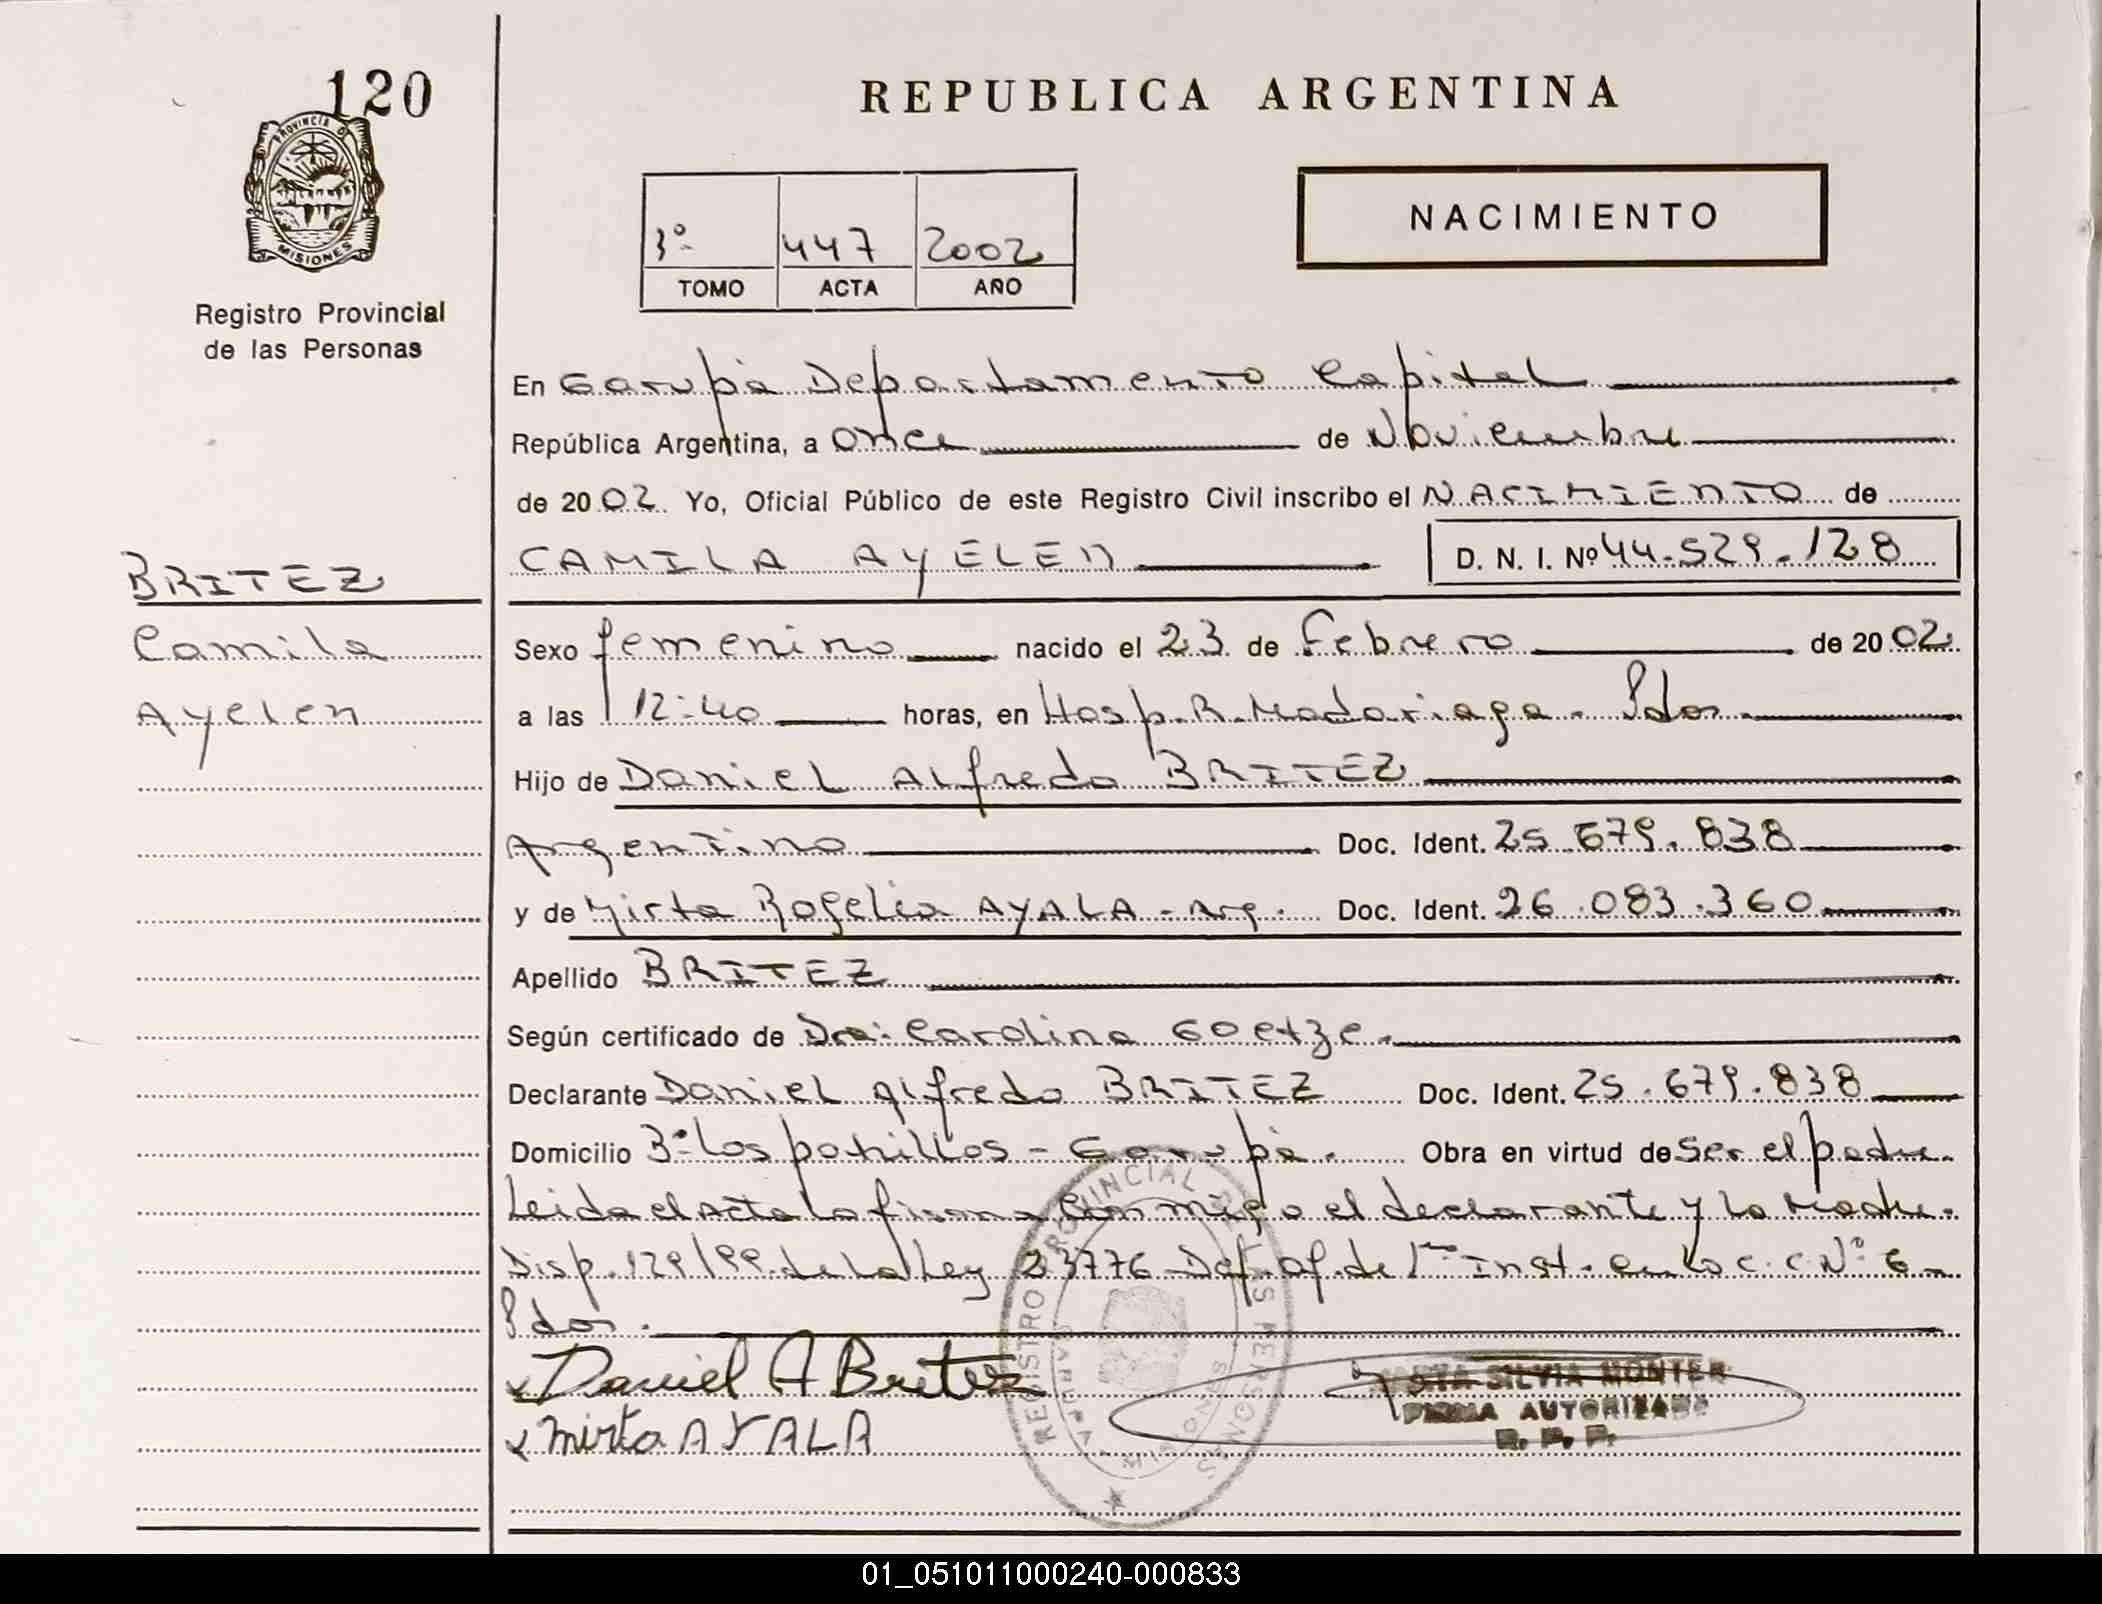 120
REPUBLICA ARGENTINA
PROVINCIA D
MISIONES
NACIMIENTO
3º 447 2002
TOMO ACTA AÑO
Registro Provincial
de las Personas
En Garupá Departamento Capital
República Argentina, a once de Noviembre
de 2002 Yo, Oficial Público de este Registro Civil inscribo el NACIMIENTO de
CAMILA AYELEN D. N. I. Nº 44.529.128
BRITEZ
Camila
Ayelen
Sexo femenino nacido el 23 de Febrero de 2002
a las 12:40 horas, en Hosp. R. Madariaga - Pdas
Hijo de Daniel Alfredo BRITEZ
Argentino Doc. Ident. 25.679.838
y de Mirta Rogelia AYALA - Arg. Doc. Ident. 26.083.360
Apellido BRITEZ
Según certificado de Dra: Carolina Goetze.
Declarante Daniel Alfredo BRITEZ Doc. Ident. 25.679.838
Domicilio Bº Los potrillos - Garupá. Obra en virtud de ser el padre
Leida el Acta la firman conmigo el declarante y la Madre.
Disp. 129/99 de la Ley 23776 Def. Of. de 1ra Inst. en lo C. C Nº 6 -
Pdas.
Daniel A Britez
Mirta AYALA
REGISTRO PROVINCIAL DE LAS PERSONAS
MISIONES
SILVIA MONTER
FIRMA AUTORIZADA
R. P. P.
01_051011000240-000833